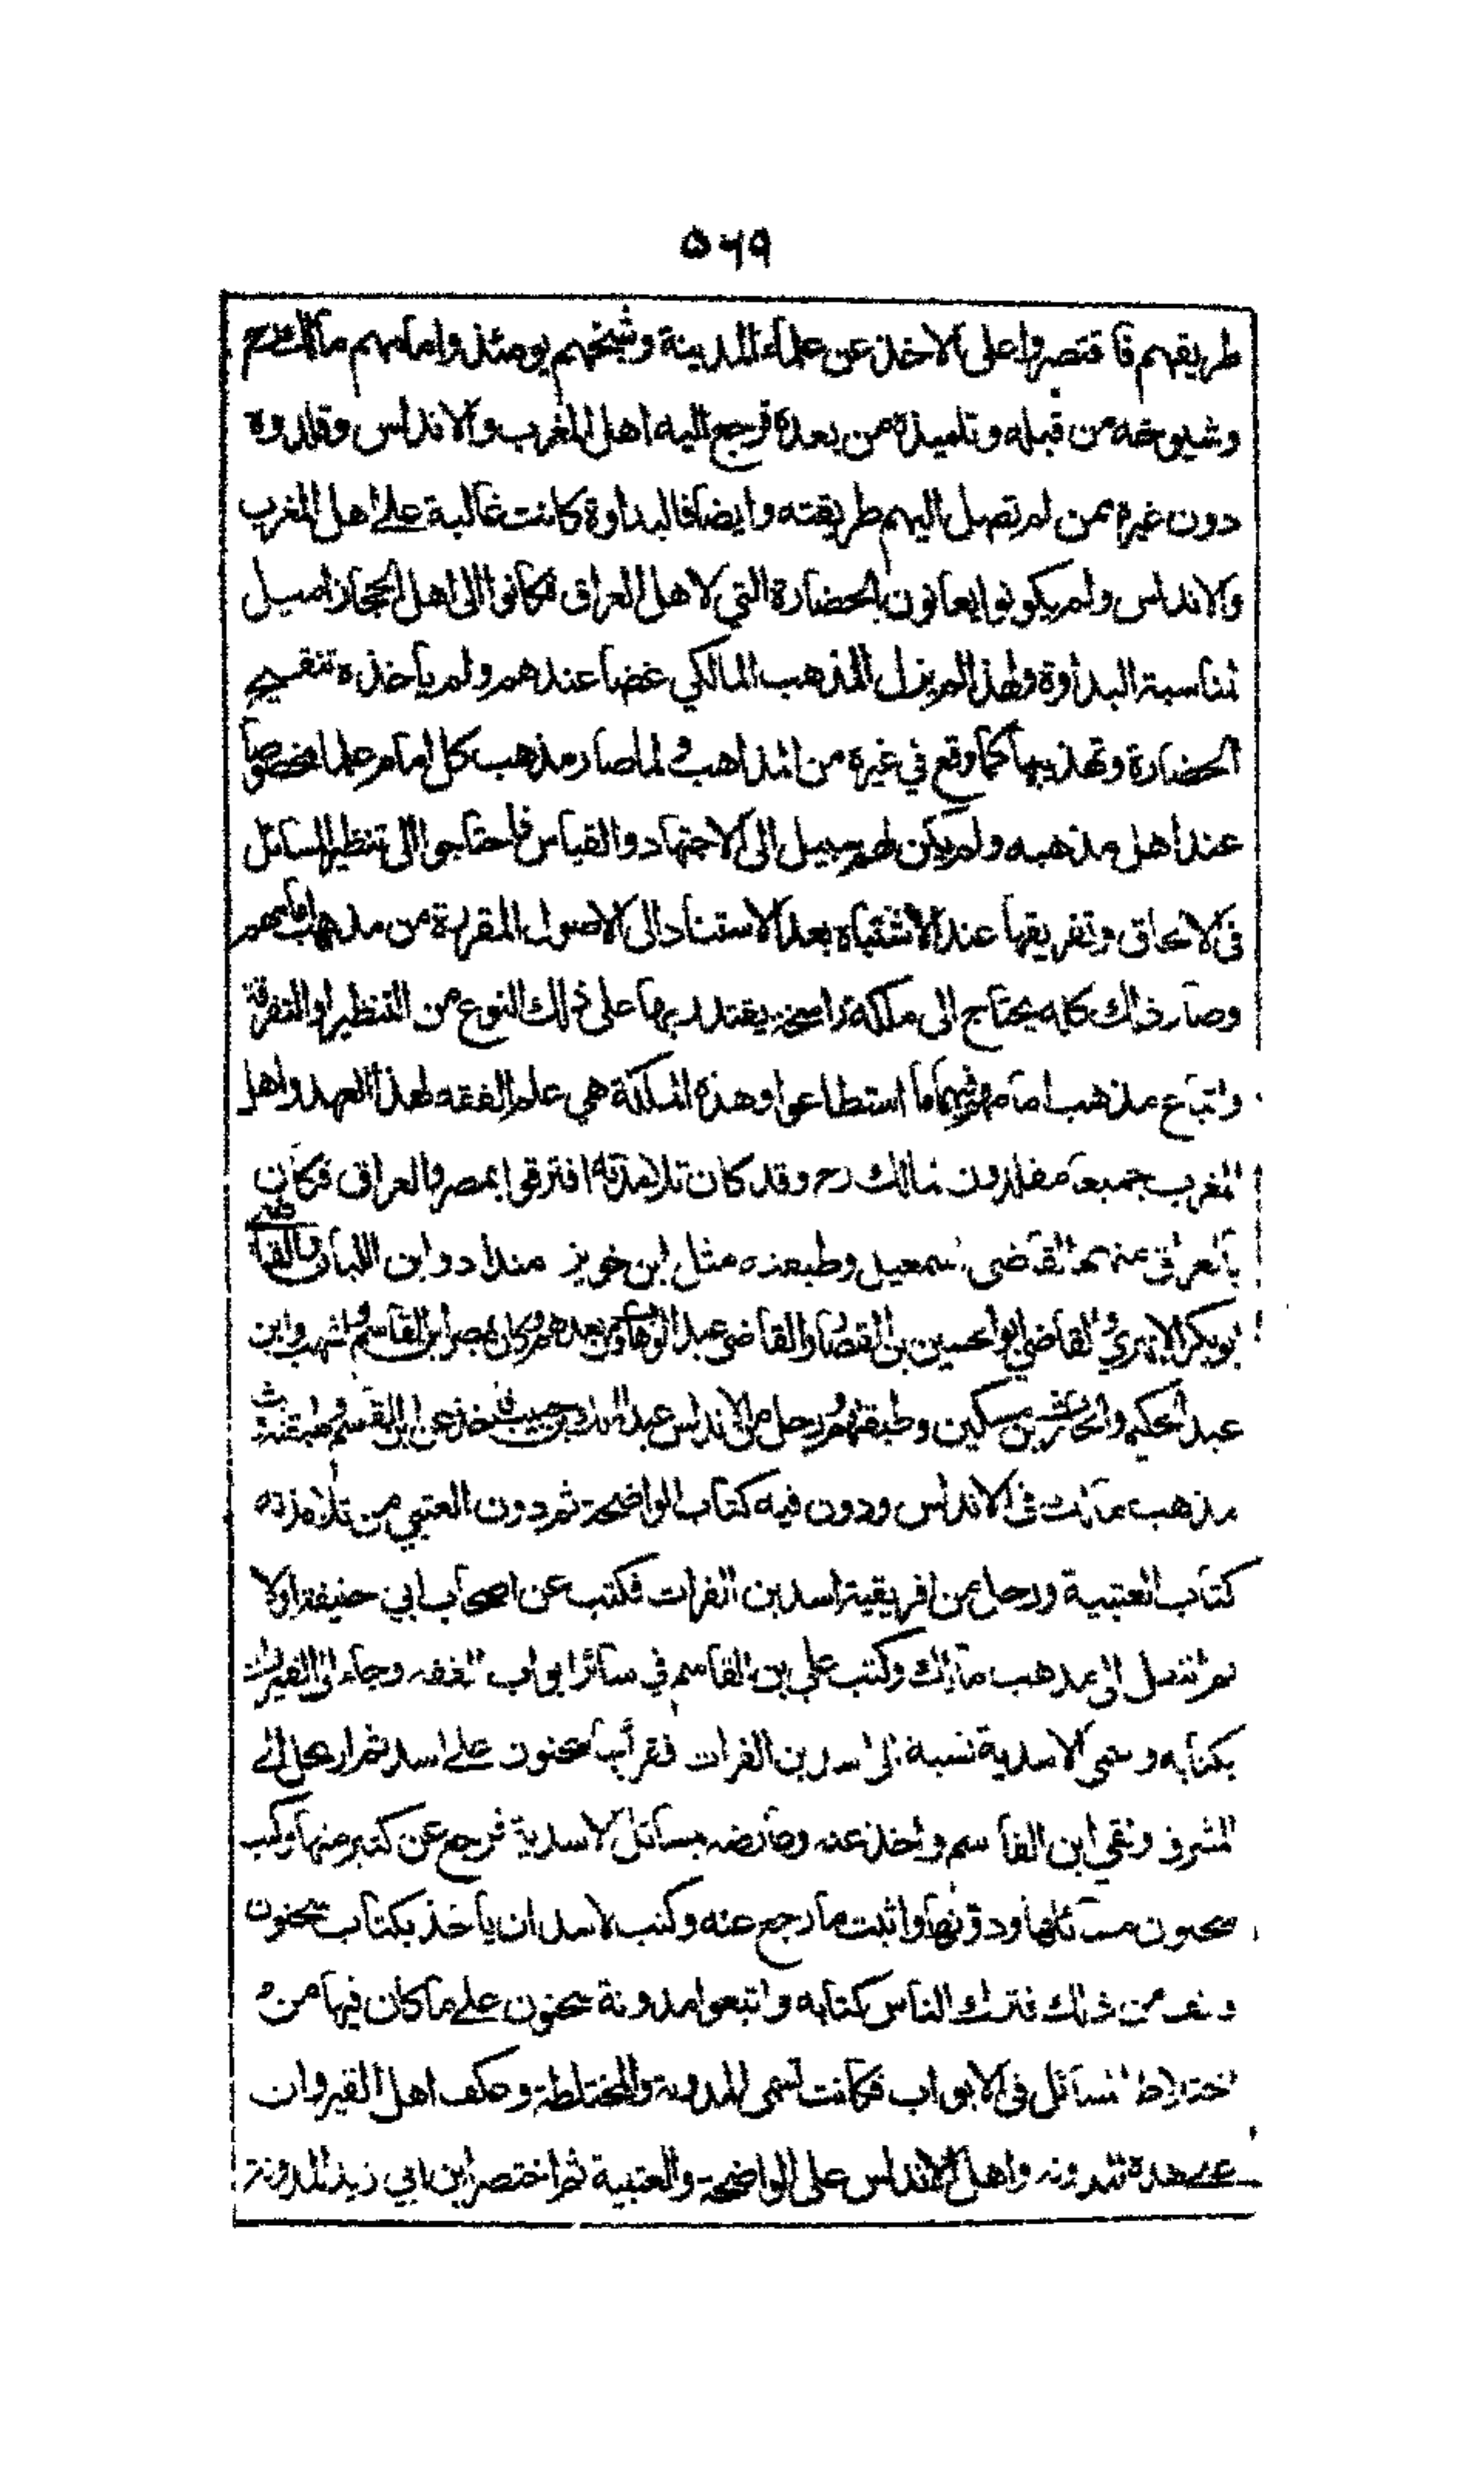 ۵۶۹
طريقهم فاقتصروا على الاخذ عن علماء المدينة وشيخهم يومئذ وامامهم مالك رح
وشيوخه من قبله وتلميذه من بعده فرجع اليه اهل المغرب والاندلس وقلدوه
دون غيره ممن لم تصل اليهم طريقته وايضا فالبداوة كانت غالبة على اهل المغرب
والاندلس ولم يكونوا يعانون الحضارة التي لاهل العراق فكانوا الى اهل الحجاز اميل
لمناسبة البداوة ولهذا لم يزل المذهب المالكي غضا عندهم ولم ياخذه تنقيح
الحضارة وتهذيبها كما وقع في غيره من المذاهب ولما صار مذهب كل امام علما مخصوصا
عند اهل مذهبه ولم يكن لهم سبيل الى الاجتهاد والقياس فاحتاجوا الى تنظير المسائل
في الالحاق وتفريقها عند الاشتباه بعد الاستناد الى الاصول المقررة من مذهب امامهم
وصار ذلك كله يحتاج الى ملكة راسخة يقتدر بها على ذلك النوع من التنظير او التفرقة
واتباع مذهب امامهم فيهما ما استطاعوا وهذه الملكة هي علم الفقه لهذا العهد واهل
المغرب جميعا مقلدون لمالك رح وقد كان تلامذته افترقوا بمصر والعراق فكان
بالعراق منهم القاضي اسمعيل وطبقته مثل ابن خويز منداد وابن اللبان والقاضي
ابو بكر الابهري والقاضي ابو الحسين بن القصار والقاضي عبد الوهاب ومن بعدهم وكان بمصر ابن القاسم واشهب وابن
عبد الحكم والحارث بن مسكين وطبقتهم ورحل من الاندلس عبد الملك بن حبيب فاخذ عن ابن القاسم وطبقته وبث
مذهب مالك في الاندلس ودون فيه كتاب الواضحة ثم دون العتبي من تلامذته
كتاب العتبية ورحل من افريقية اسد بن الفرات فكتب عن اصحاب ابي حنيفة اولا
ثم انتقل الى مذهب مالك وكتب على بن القاسم في سائر ابواب الفقه وجاء الى القيروان
بكتابه وسمي الاسدية نسبة الى اسد بن الفرات فقرأ بها سحنون على اسد ثم ارتحل الى
المشرق ولقي ابن القاسم واخذ عنه وعارضه بمسائل الاسدية فرجع عن كثير منها وكتب
سحنون مسائلها ودونها واثبت ما رجع عنه وكتب لاسد ان ياخذ بكتاب سحنون
فانف من ذلك فترك الناس كتابه واتبعوا مدونة سحنون على ما كان فيها من
اختلاط المسائل في الابواب فكانت تسمى المدونة والمختلطة وعكف اهل القيروان
على هذه المدونة واهل الاندلس على الواضحة والعتبية ثم اختصر ابن ابي زيد المدونة